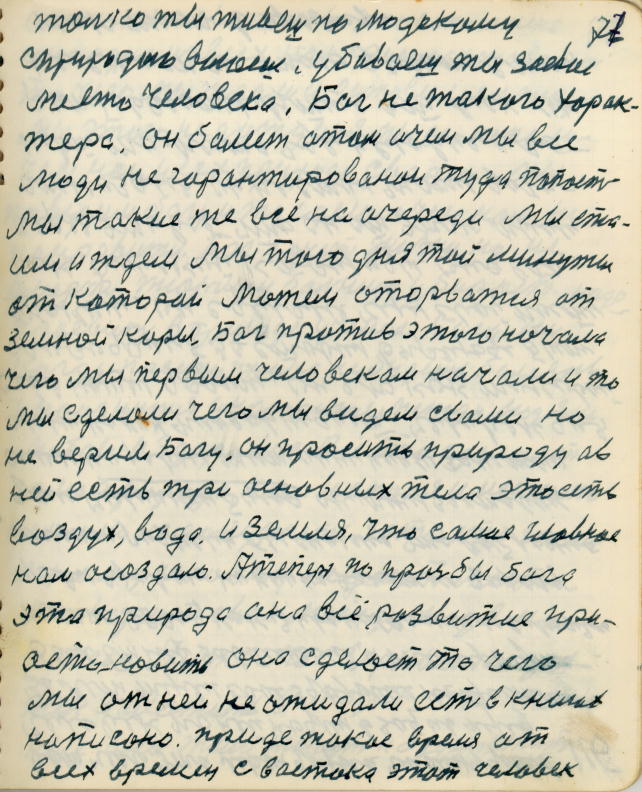 только ты живеш по людскому 71
с природою воюеш, убиваеш ты за свое
место человека. Бог не такого харак-
тера. он болеет о том о чем мы все
люди не гарантированои туда попасть
мы такие же все на очереди мы ста-
им и ждем мы того дня той минуты
от которой можем оторватся от
земной коры. Бог против этого начала
чего мы первым человекам начали и то
мы сделоли чего мы видем сами но
не верим Богу. он просить природу а в
ней есть три основных тела это есть
воздух, вода, и земля, что самое главное
нам осоздало. А теперь по прозбы бога
эта природа она всё развитие при-
оста-новить она сделает то чего
мы от ней не ожидали есть в книгах
написоно. приде такое время от
всех времен с востока этот человек